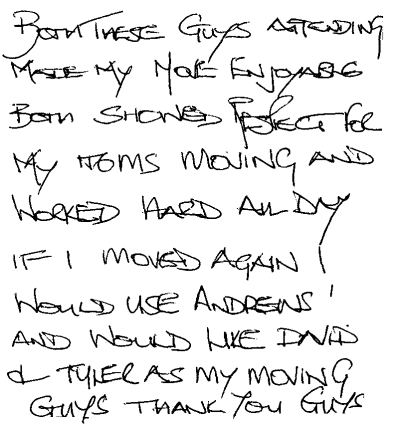 BOTH THESE GUYS ATTENDING
MADE MY MOVE ENJOYABLE
BOTH SHOWED RESPECT FOR
MY ITOMS MOVING AND
WORKED HARD ALL DAY
IF I MOVED AGAIN I
WOULD USE ANDREWS'
AND WOULD LIKE DAVID
& TYLER AS MY MOVING
GUYS THANK YOU GUYS